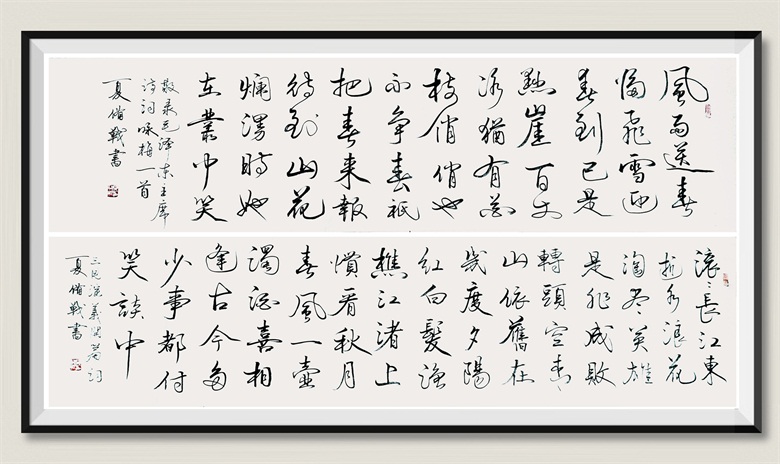 風雨送春
歸飛雪迎
春到已是
懸崖百丈
冰猶有花
枝俏俏也
不争春衹
把春来報
待到山花
爛漫時她
在叢中笑
敬录毛澤东主席
诗词咏梅一首
夏備戰書
滚々長江東
逝水浪花
淘尽英雄
是非成敗
轉頭空青
山依舊在
幾度夕陽
紅白髮漁
樵江渚上
慣看秋月
春風一壺
濁酒喜相
逢古今多
少事都付
笑談中
三国演義開篇词
夏備戰書